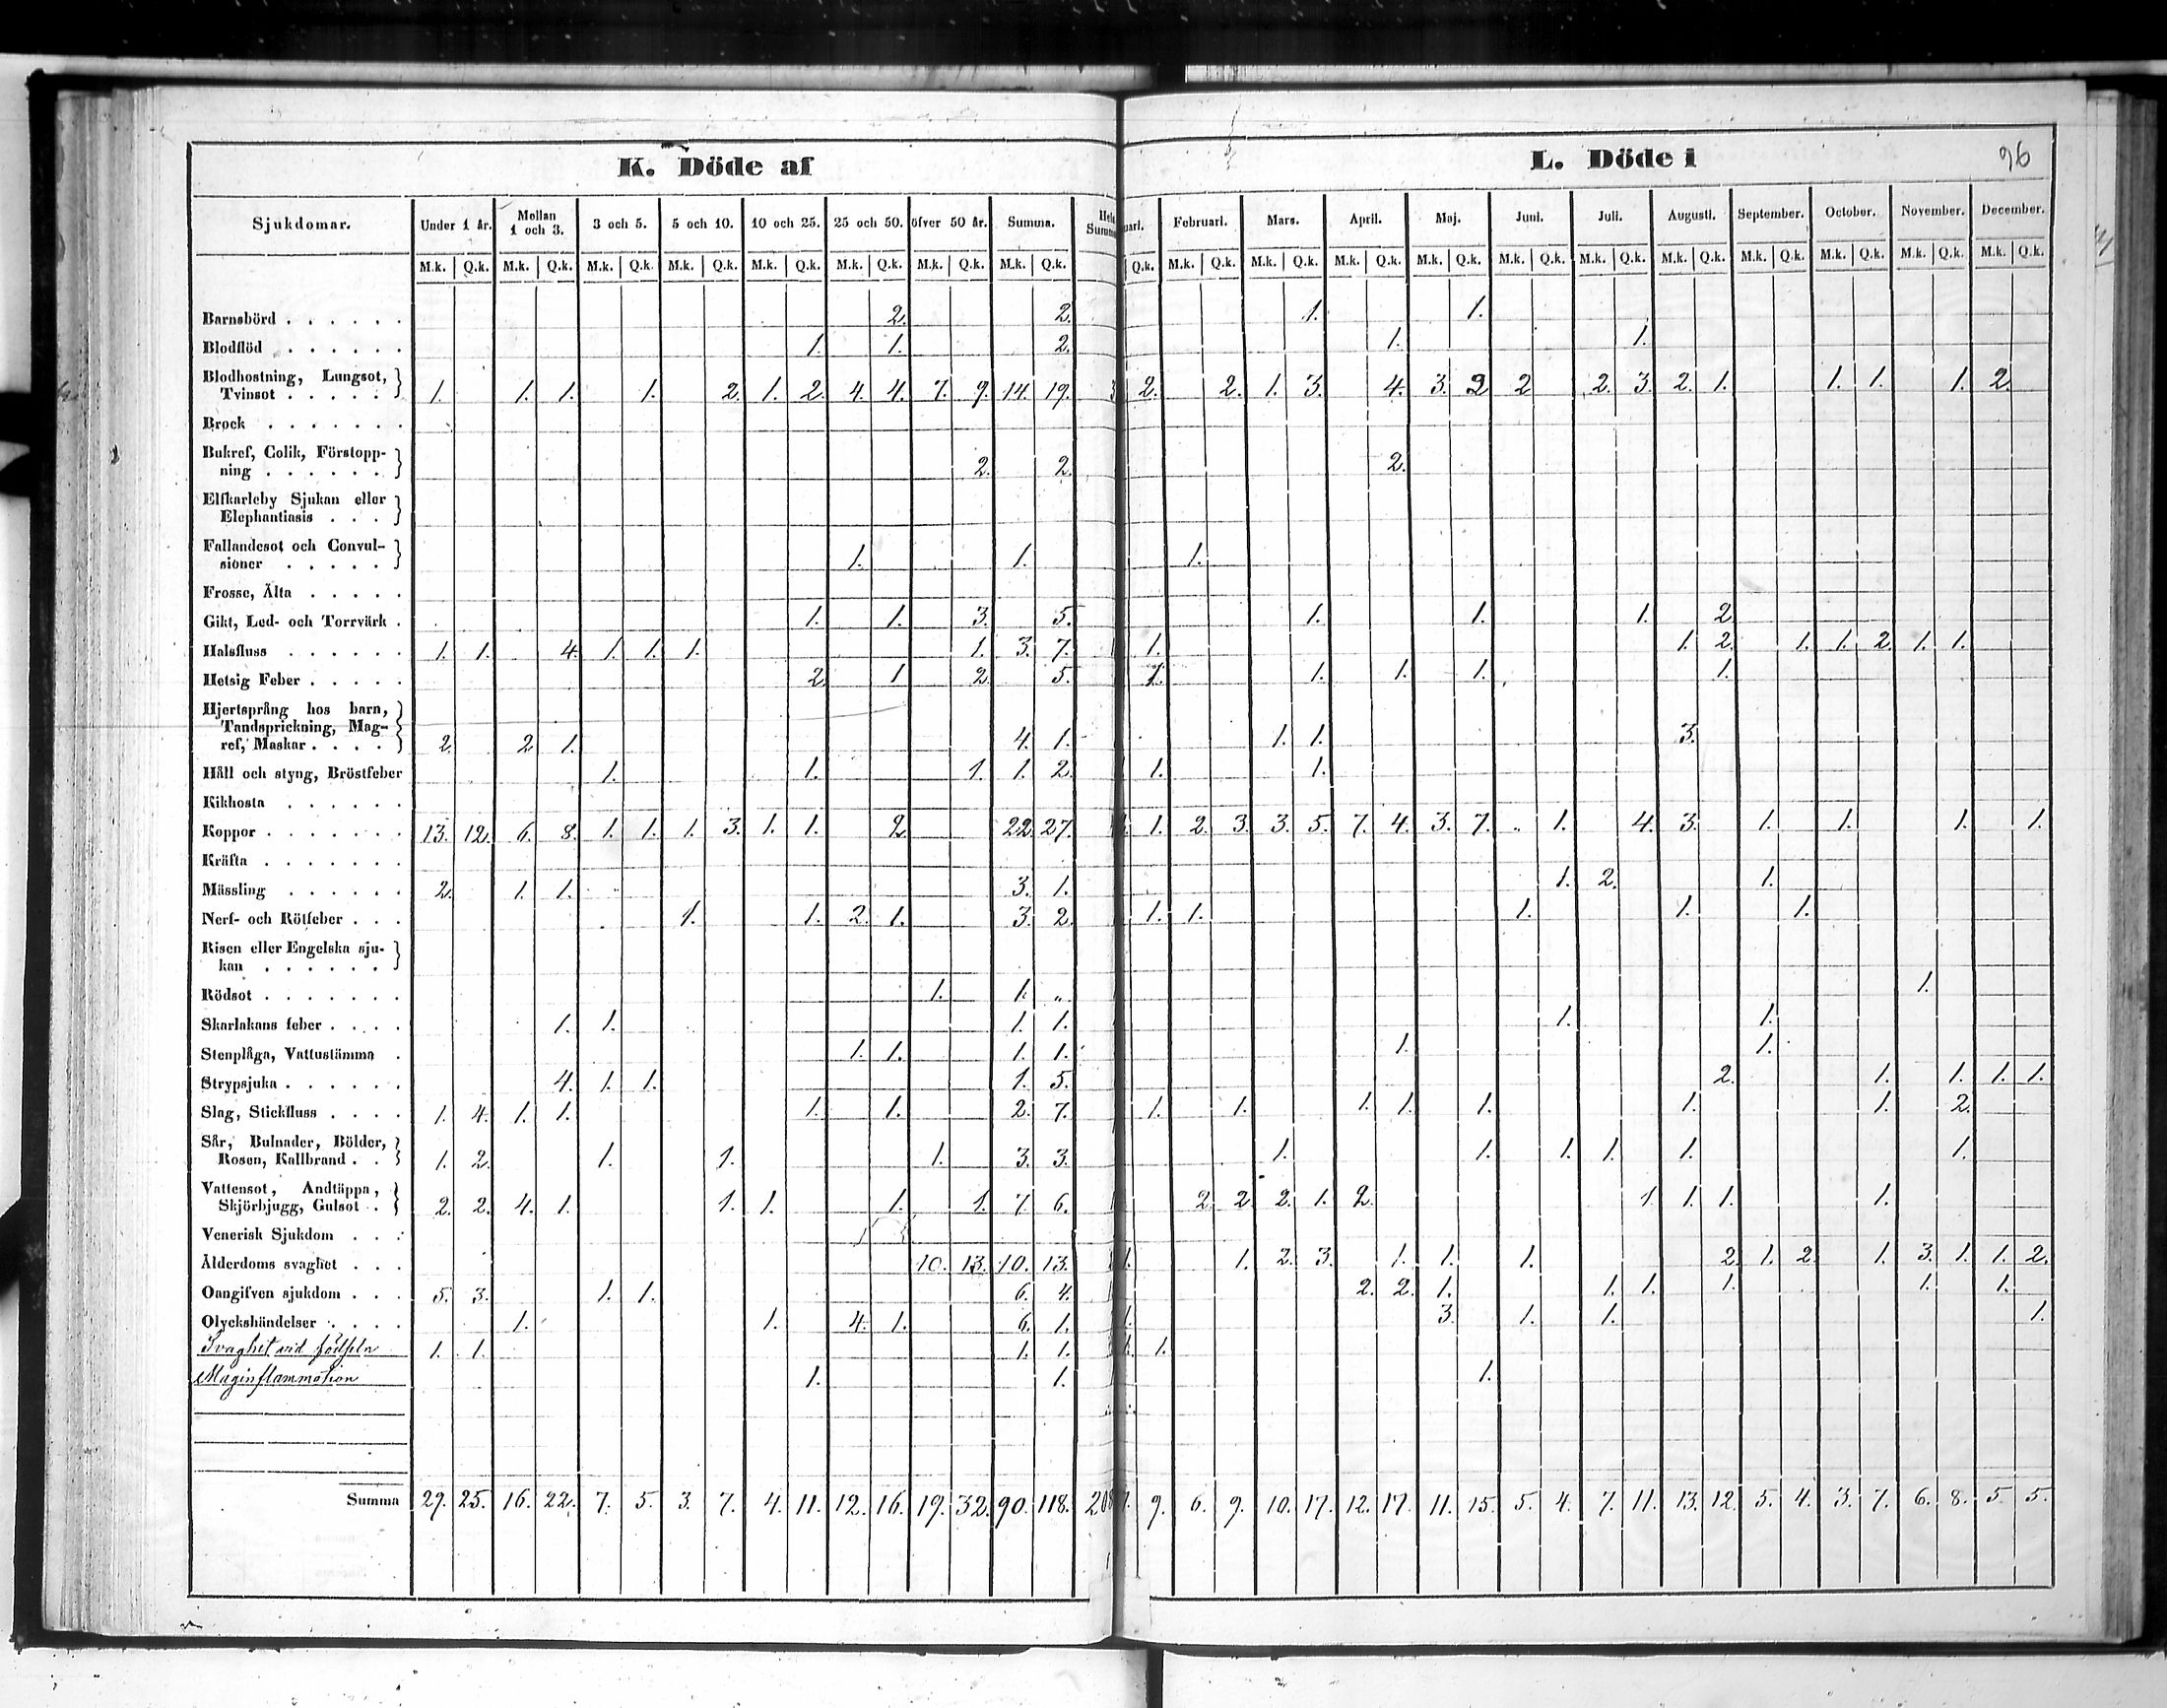 K. Döde af
Sjukdomar. Under 1 år. Mellan 1 och 3. 3 och 5. 5 och 10. 10 och 25. 25 och 50. öfver 50 år. Summa. Hela Summa
M.k. Q.k. M.k. Q.k. M.k. Q.k. M.k. Q.k. M.k. Q.k. M.k. Q.k. M.k. Q.k. M.k. Q.k.
Barnsbörd . . . . . . 2. 2.
Blodflöd . . . . . . 1. 1. 2.
Blodhostning, Lungsot, }
Tvinsot . . . . . 1. 1. 1. 1. 2. 1. 2. 4. 4. 7. 9. 14. 19. 3
Brock . . . . . . .
Bukref, Colik, Förstopp- }
ning . . . . . . 2. 2.
Elfkarleby Sjukan eller }
Elephantiasis . . .
Fallandesot och Convul- }
sioner . . . . . 1. 1.
Frosse, Älta . . . . .
Gikt, Led- och Torrvärk . 1. 1. 3. 5.
Halsfluss . . . . . . 1. 1. 4. 1. 1. 1. 1. 3. 7.
Hetsig Feber . . . . . 2. 1 2. 5.
Hjertsprång hos barn, }
Tandsprickning, Mag-
ref, Maskar . . . . 2. 2 1. 4. 1.
Håll och styng, Bröstfeber 1. 1. 1. 1. 2.
Kikhosta . . . . . .
Koppor . . . . . . . 13. 12. 6. 8. 1. 1. 1. 3. 1. 1. 2. 22. 27.
Kräfta . . . . . . .
Mässling . . . . . . 2. 1. 1. 3. 1.
Nerf- och Rötfeber . . . 1. 1. 2. 1. 3. 2.
Risen eller Engelska sju- }
kan . . . . . .
Rödsot . . . . . . . 1. 1. „
Skarlakans feber . . . . 1. 1. 1. 1.
Stenplåga, Vattustämma . 1. 1. 1. 1.
Strypsjuka . . . . . . 4. 1. 1. 1. 5.
Slag, Stickfluss . . . . 1. 4. 1. 1. 1. 1. 2. 7.
Sår, Bulnader, Bölder, }
Rosen, Kallbrand . . 1. 2. 1. 1. 1. 3. 3.
Vattensot, Andtäppa, }
Skjörbjugg, Gulsot . 2. 2. 4. 1. 1. 1. 1. 1. 7. 6.
Venerisk Sjukdom . . .
Ålderdoms svaghet . . . 10. 13. 10. 13.
Oangifven sjukdom . . . 5. 3. 1. 1. 6. 4.
Olyckshändelser . . . . 1. 1. 4. 1. 6. 1.
Svaghet vid födseln 1. 1. 1. 1.
Maginflammation 1. 1.
Summa 29. 25. 16. 22. 7. 5. 3. 7. 4. 11. 12. 16. 19. 32. 90. 118. 208
L. Döde i
96
uari. Februari. Mars. April. Maj. Juni. Juli. Augusti. September. October. November. December.
Q.k. M.k. Q.k. M.k. Q.k. M.k. Q.k. M.k. Q.k. M.k. Q.k. M.k. Q.k. M.k. Q.k. M.k. Q.k. M.k. Q.k. M.k. Q.k. M.k. Q.k.
1. 1.
1. 1.
2. 2. 1. 3. 4. 3. 2 2 2. 3. 2. 1. 1. 1. 1. 2.
2.
1.
1. 1. 1. 2
1. 1. 2. 1. 1. 2. 1. 1.
1. 1. 1. 1. 1.
1. 1. 3.
1. 1.
1. 2. 3. 3. 5. 7. 4. 3. 7. „ 1. 4. 3. 1. 1. 1. 1.
1. 2. 1.
1. 1. 1. 1. 1.
1.
1. 1.
1. 1.
2. 1. 1. 1. 1.
1. 1. 1. 1. 1. 1. 1. 2.
1. 1. 1. 1. 1. 1.
2. 2 2. 1. 2. 1 1. 1. 1.
1. 1. 2. 3. 1. 1. 1. 2. 1. 2. 1. 3. 1. 1. 2.
2. 2. 1. 1. 1. 1. 1. 1.
1. 3. 1. 1. 1.
1. 1.
1.
9. 6. 9. 10. 17. 12. 17. 11. 15. 5. 4. 7. 11. 13. 12. 5. 4. 3. 7. 6. 8. 5. 5.